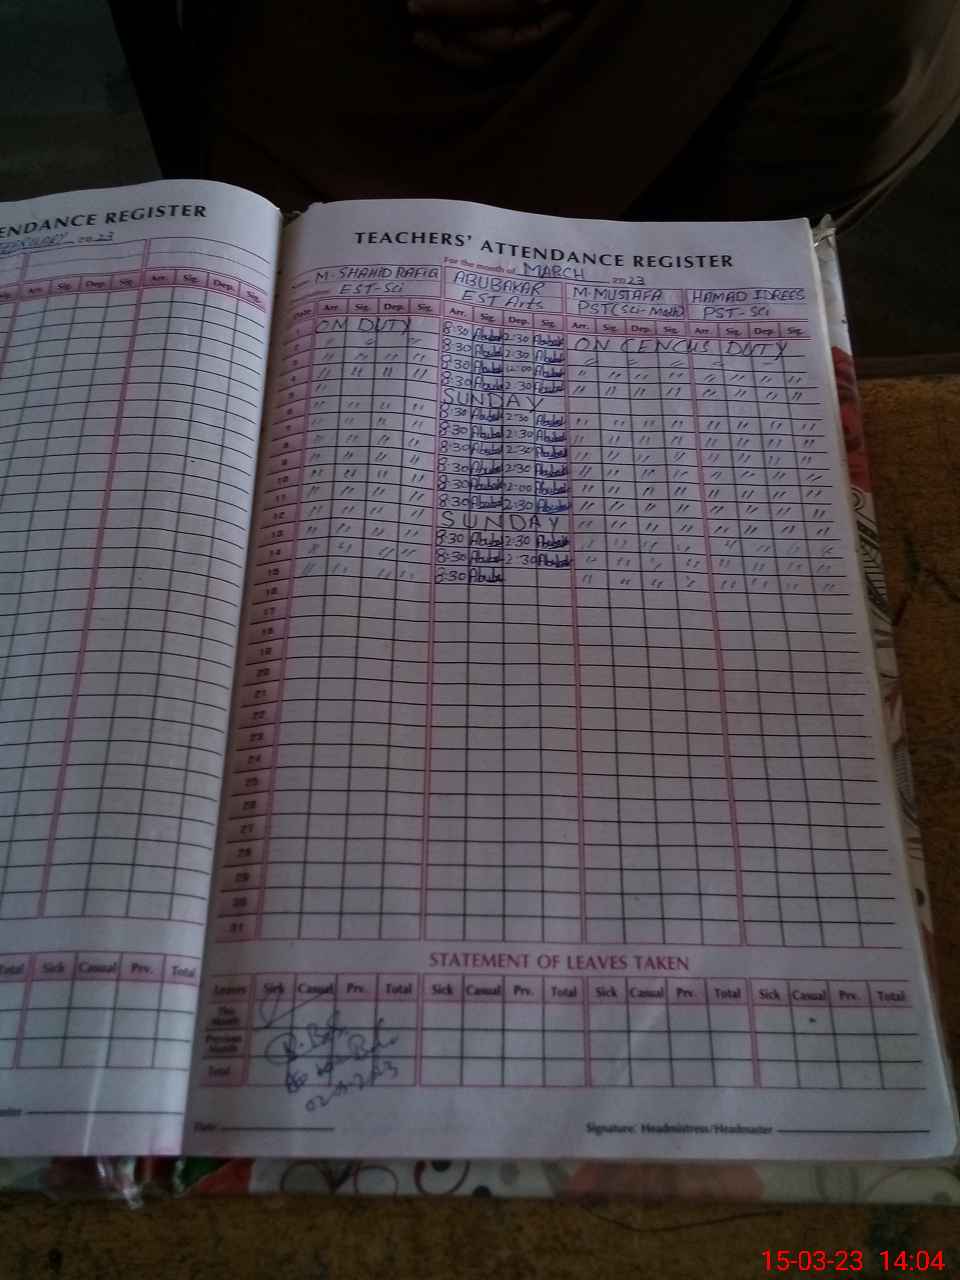 ENDANCE REGISTER
FEBRUARY 2023
Arr. Sig. Dep. Sig. Arr. Sig. Dep. Sig.
Total Sick Casual Prv. Total
TEACHERS' ATTENDANCE REGISTER
For the month of MARCH 2023
M-SHAHID RAFIQ ABUBAKAR M-MUSTAFA HAMAD IDREES
EST-Sci EST Arts PST(Sci-Math) PST-Sci
Date Arr. Sig. Dep. Sig. Arr. Sig. Dep. Sig. Arr. Sig. Dep. Sig. Arr. Sig. Dep. Sig.
1 ON DUTY 8:30 Abubak 2:30 Abubak ON CENCUS DUTY
2 " " " 8:30 Abubak 2:30 Abubak " " " " " "
3 " " " " 8:30 Abubak 12:00 Abubak " " " " " " " "
4 " " " " 8:30 Abubak 2:30 Abubak " " " " " " " "
5 " SUNDAY
6 " " " " 8:30 Abubak 2:30 Abubak " " " " " " " "
7 " " " " 8:30 Abubak 2:30 Abubak " " " " " " " "
8 " " " " 8:30 Abubak 2:30 Abubak " " " " " " " "
9 " " " " 8:30 Abubak 2:30 Abubak " " " " " " " "
10 " " " " 8:30 Abubak 2:00 Abubak " " " " " " " "
11 " " " " 8:30 Abubak 2:30 Abubak " " " " " " " "
12 " " " " SUNDAY " " " " " " " "
13 " " " " 8:30 Abubak 2:30 Abubak " " " " " " " "
14 " " " " 8:30 Abubak 2:30 Abubak " " " " " " " "
15 " " " " 8:30 Abubak " " " " " " " "
16
17
18
19
20
21
22
23
24
25
26
27
28
29
30
31
STATEMENT OF LEAVES TAKEN
Leaves Sick Casual Prv. Total Sick Casual Prv. Total Sick Casual Prv. Total Sick Casual Prv. Total
This Month
Previous Month
Total
Date:
Signature: Headmistress/Headmaster
15-03-23 14:04